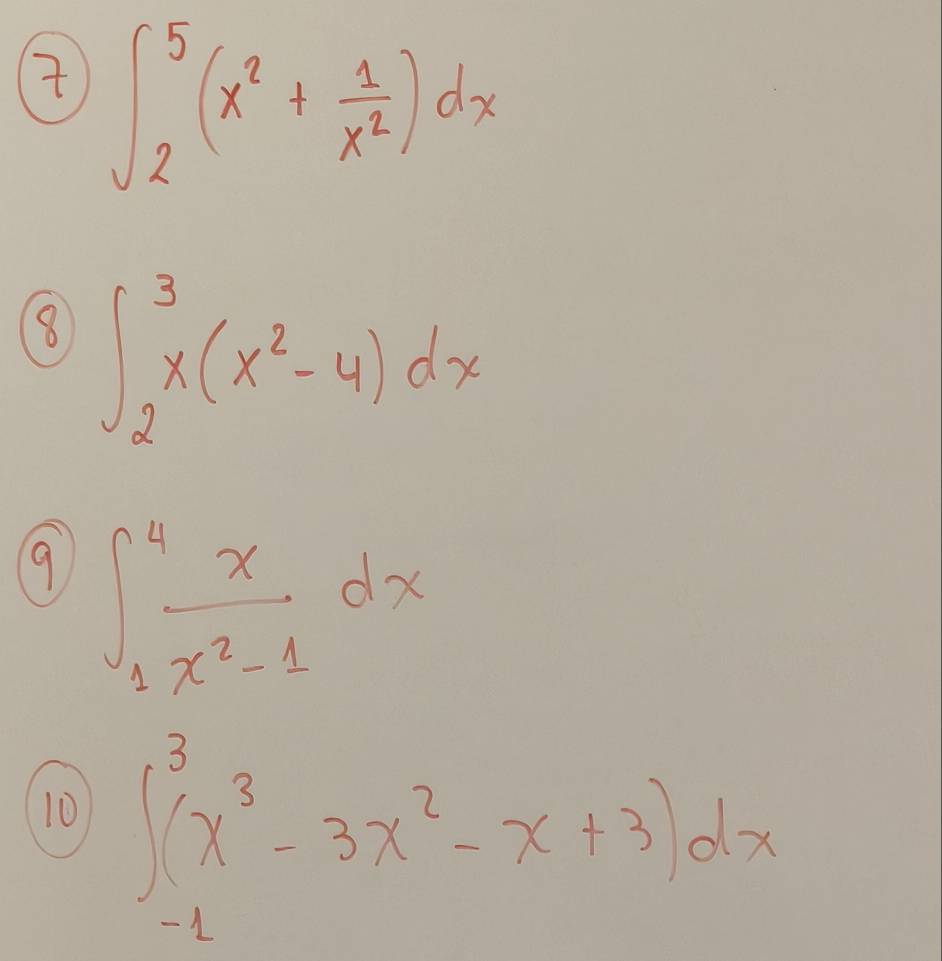 ⑦ ∫₂⁵ (x² + 1/x²) dx
⑧ ∫₂³ x(x² - 4) dx
⑨ ∫₁⁴ x/(x² - 1) dx
⑩ ∫₋₁³ (x³ - 3x² - x + 3) dx